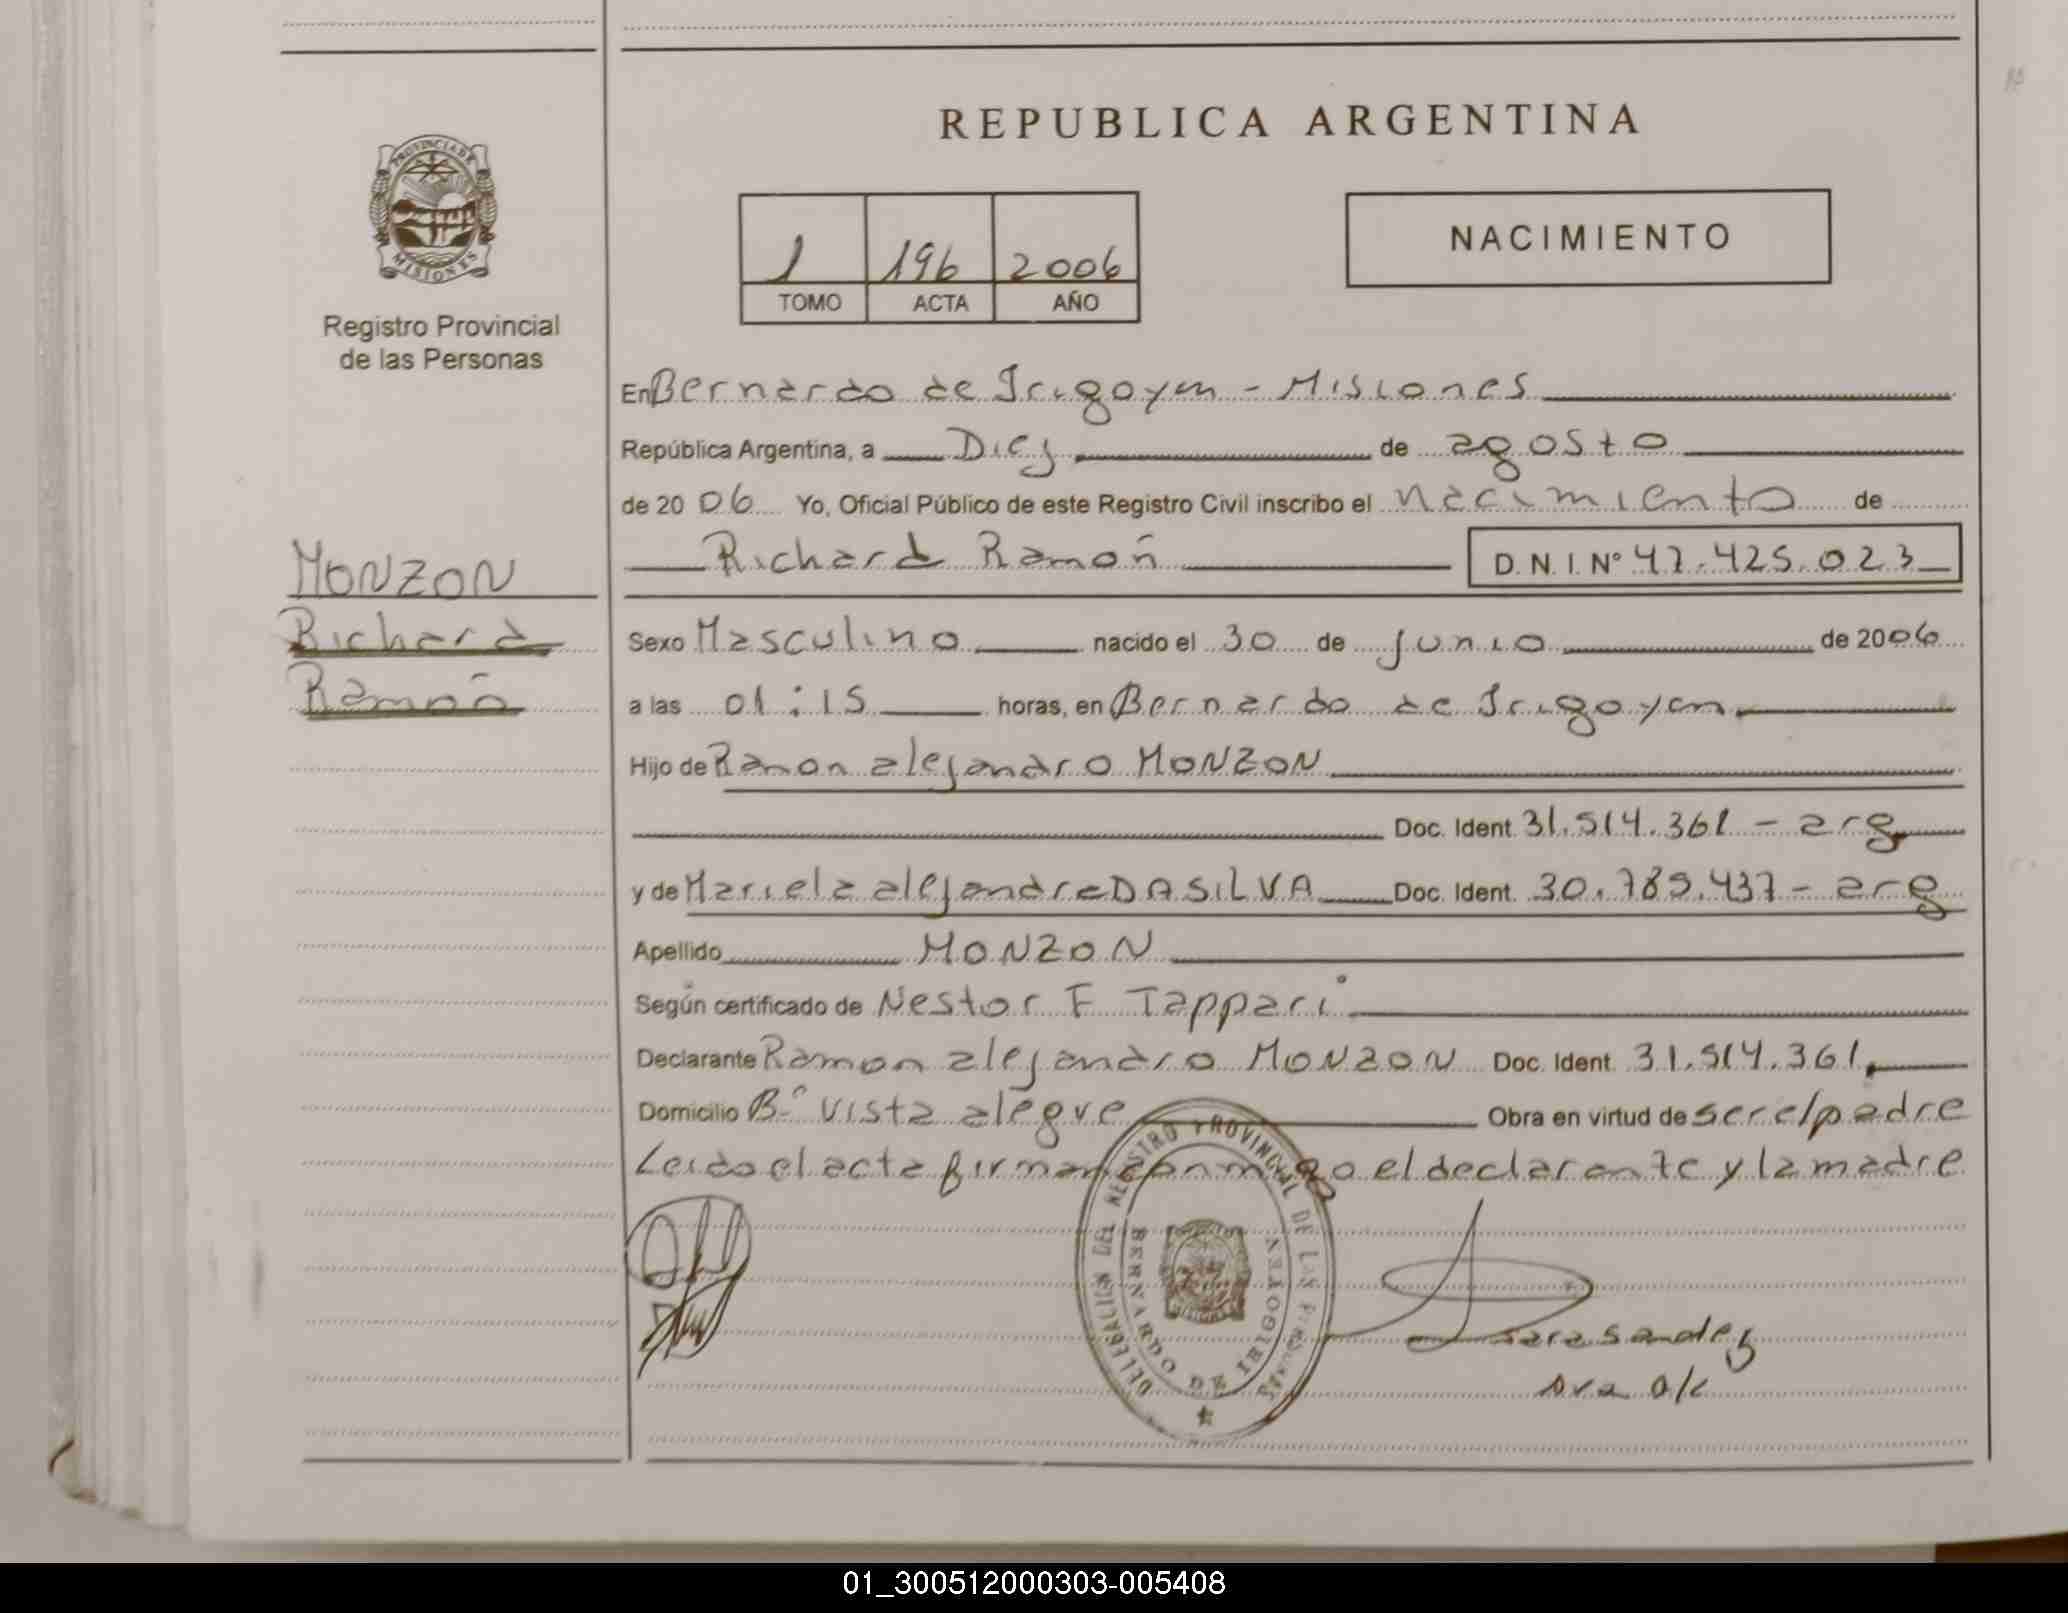 REPUBLICA ARGENTINA
PROVINCIA DE MISIONES
Registro Provincial
de las Personas
1 196 2006
TOMO ACTA AÑO
NACIMIENTO
En Bernardo de Irigoyen - Misiones
República Argentina, a Diez de agosto
de 2006 Yo, Oficial Público de este Registro Civil inscribo el nacimiento de
Richard Ramoñ D.N.I. Nº 47.425.023
MONZON
Richard
Ramoñ
Sexo Masculino nacido el 30 de junio de 2006
a las 01:15 horas, en Bernardo de Irigoyen
Hijo de Ramon alejandro MONZON
Doc. Ident. 31.514.361 - arg
y de Mariela alejandra DASILVA Doc. Ident. 30.789.437 - arg
Apellido MONZON
Según certificado de Nestor F Tappari
Declarante Ramon alejandro MONZON Doc. Ident. 31.514.361
Domicilio Bº Vista alegre Obra en virtud de ser el padre
Leido el acta firman conmigo el declarante y la madre
DELEGACION DEL REGISTRO PROVINCIAL DE LAS PERSONAS
BERNARDO DE IRIGOYEN
01_300512000303-005408